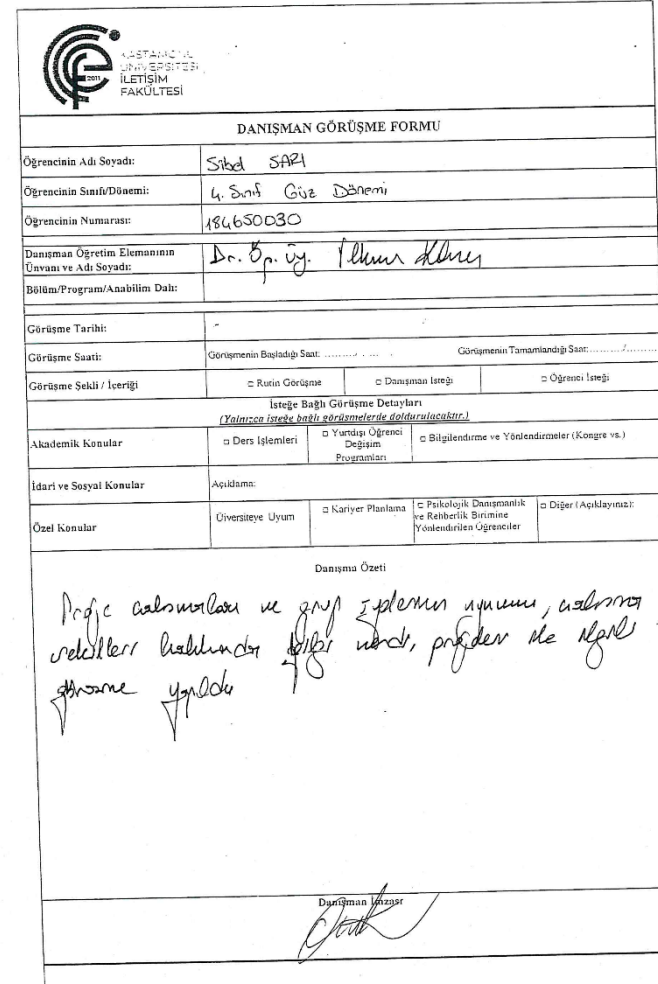 KASTAMONU
ÜNİVERSİTESİ
İLETİŞİM
FAKÜLTESİ
2011
DANIŞMAN GÖRÜŞME FORMU
Öğrencinin Adı Soyadı: Sibel SARI
Öğrencinin Sınıfı/Dönemi: 4. Sınıf Güz Dönemi
Öğrencinin Numarası: 184650030
Danışman Öğretim Elemanının
Ünvanı ve Adı Soyadı: Dr. Öğr. Üy.
Bölüm/Program/Anabilim Dalı:
Görüşme Tarihi: -
Görüşme Saati: Görüşmenin Başladığı Saat: Görüşmenin Tamamlandığı Saat:
Görüşme Şekli / İçeriği □ Rutin Görüşme □ Danışman İsteği □ Öğrenci İsteği
İsteğe Bağlı Görüşme Detayları
(Yalnızca isteğe bağlı görüşmelerde doldurulacaktır.)
Akademik Konular □ Ders İşlemleri □ Yurtdışı Öğrenci Değişim Programları □ Bilgilendirme ve Yönlendirmeler (Kongre vs.)
İdari ve Sosyal Konular Açıklama:
Özel Konular Üiversiteye Uyum □ Kariyer Planlama □ Psikolojik Danışmanlık ve Rehberlik Birimine Yönlendirilen Öğrenciler □ Diğer (Açıklayınız):
Danışma Özeti
Proje çalışmaları ve grup uyumu, çalışma
şekilleri hakkında bilgi verdi, ile ilgili
görüşme yapıldı
Danışman İmzası